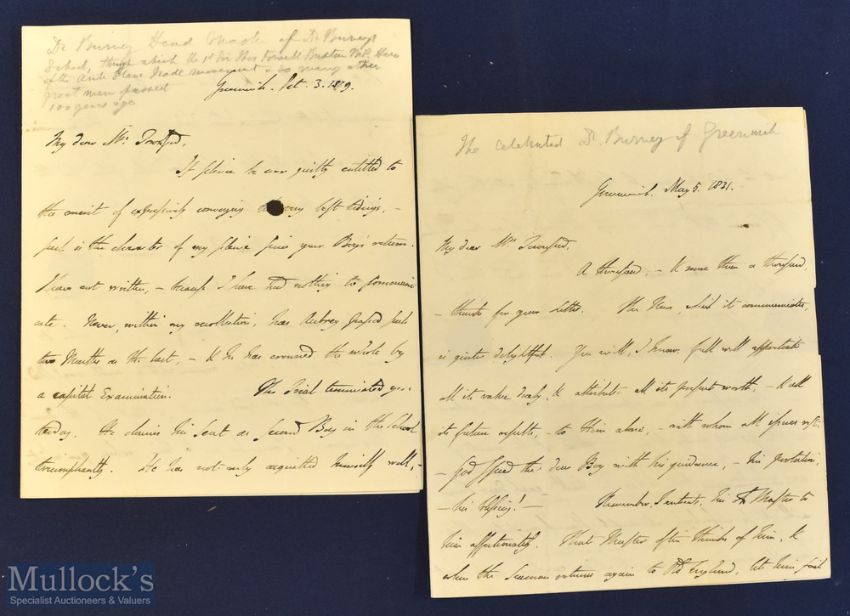 Dr Burney Head Master of Dr Burneys
School, through which the 1st Sir Thos Fowell Buxton M.P. Hero
of the Anti Slave Trade movement & so many other
great men passed
100 years ago
Greenwich. Oct. 3. 1829.
My dear Mrs. Townsend,
If silence be ever justly entitled to
the merit of expressively conveying the very best tidings, -
such is the character of my silence since your Boy's return.
I have not written, - though I have had nothing to communi
cate. Never, within my recollection, has Aubrey passed such
two Months as the last, - & he has crowned the whole by
a capital Examination. The Trial terminated yes-
terday. He claims his Seat as Second Boy in the School
triumphantly. He has not only acquitted himself well, -
The celebrated Dr. Burney of Greenwich
Greenwich. May 5. 1831.
My dear Mrs. Townsend,
A thousand, - & more than a thousand,
- thanks for your Letter. The News, which it communicates,
is quite delightful. You will, I know, full well appreciate
all its value duly, & attribute all its present worth, - & all
its future results, - to Him alone, - with whom all issues rest.
- God speed the dear Boy with his guidance, - his protection,
- his blessing! - Remember, I entreat, his Master to
him affectionately. That Master often thinks of him, &
when the Seaman returns again to Old England, let him find
Mullock's
Specialist Auctioneers & Valuers